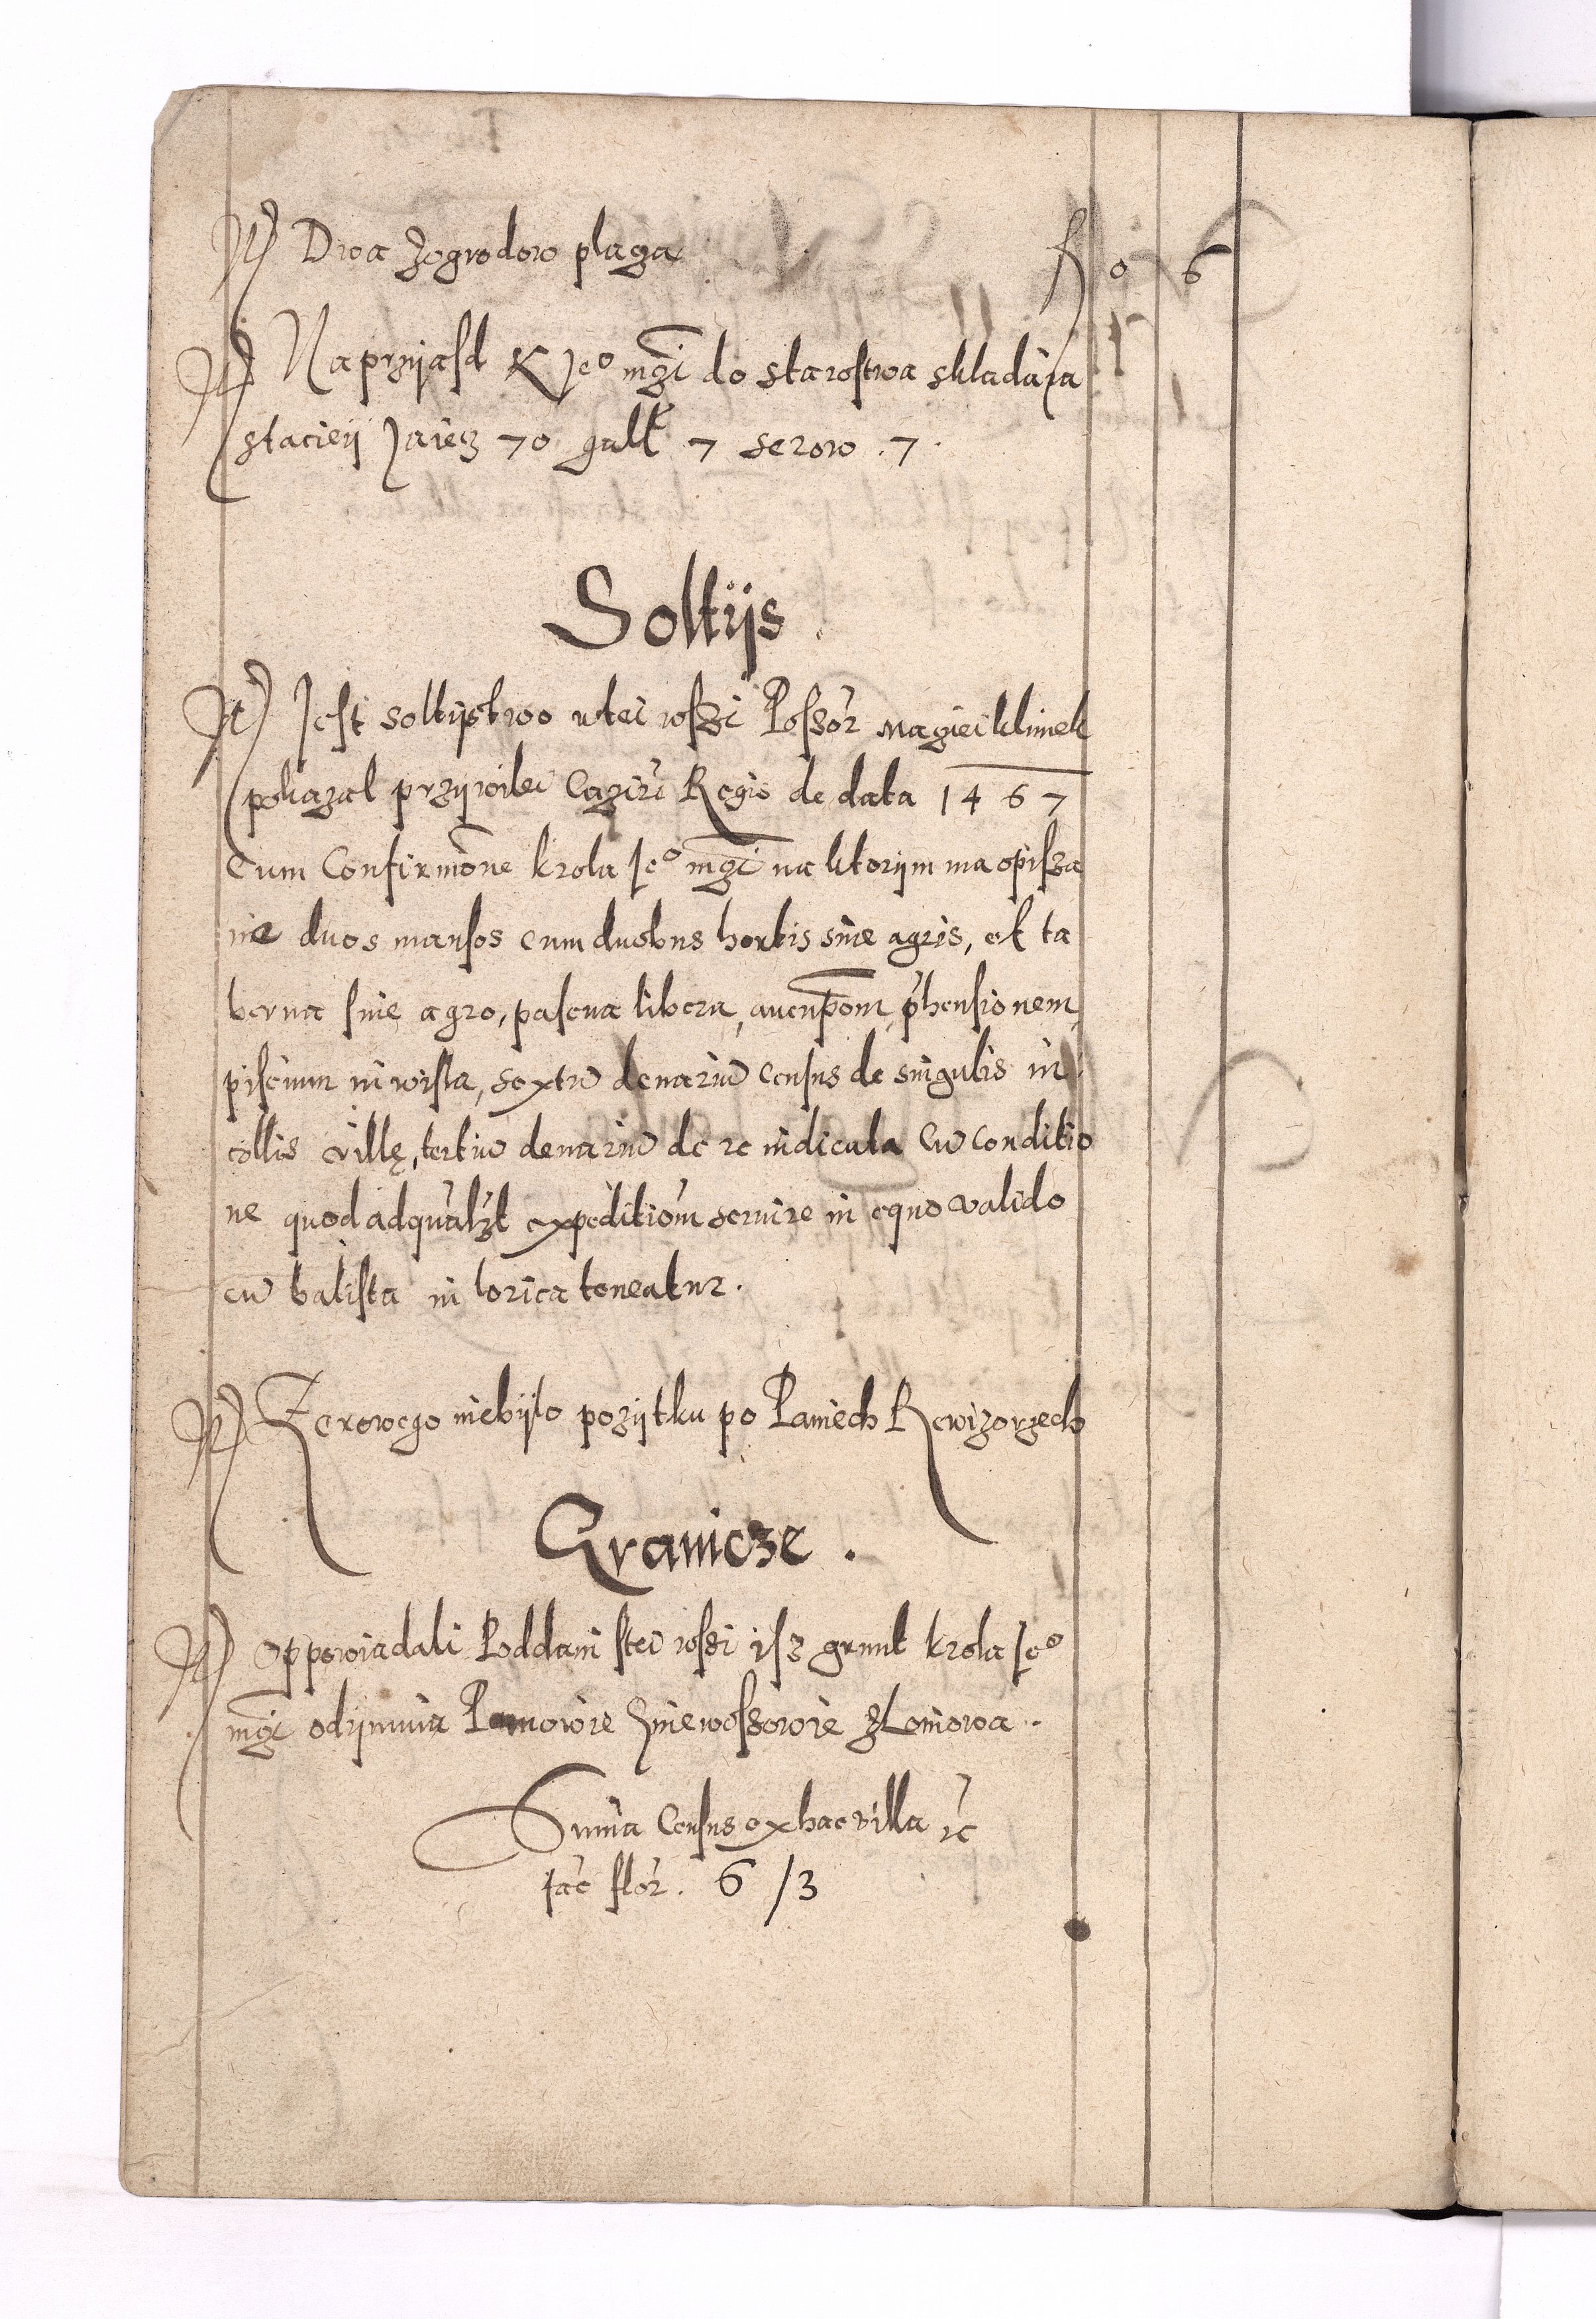 It Dwa zogrodow plaza fl 0 6
It Na przijasd K Jeo mczi do starostwa skladaia
staciey Jaiecz 70 gusk 7 serow . 7 .
Soltijs .
It Jest soltijstwo utei wsszi Possor Maziei klimek
pokazal przijwilei Cazimi Regis de data 1467
Cum Confirmone krola Jeo mczi na ktorijm ma opissa
nie duos mansos cum duobus hortis sine agris, et ta
berna sine agro, pascua libera, aucupom, phensionem,
piscium in wisla, sextu denariu census de singulis in
collis villę, tertiu denariu de re iudicata Cu conditio
ne quod ad qualzt expeditiom seruire in equo valido
cu balista in lorica teneatur .
It Zerowego niebijlo pozijtku po Paniech Rewizorzech
Granicze .
It Oppowiadali Poddani stei wssi isz grunt krola Jeo
mczi odijmuia Panowie Gniewossowie z Loniowa ..
Suma Census ex hac villa
fac flor . 6 / 3